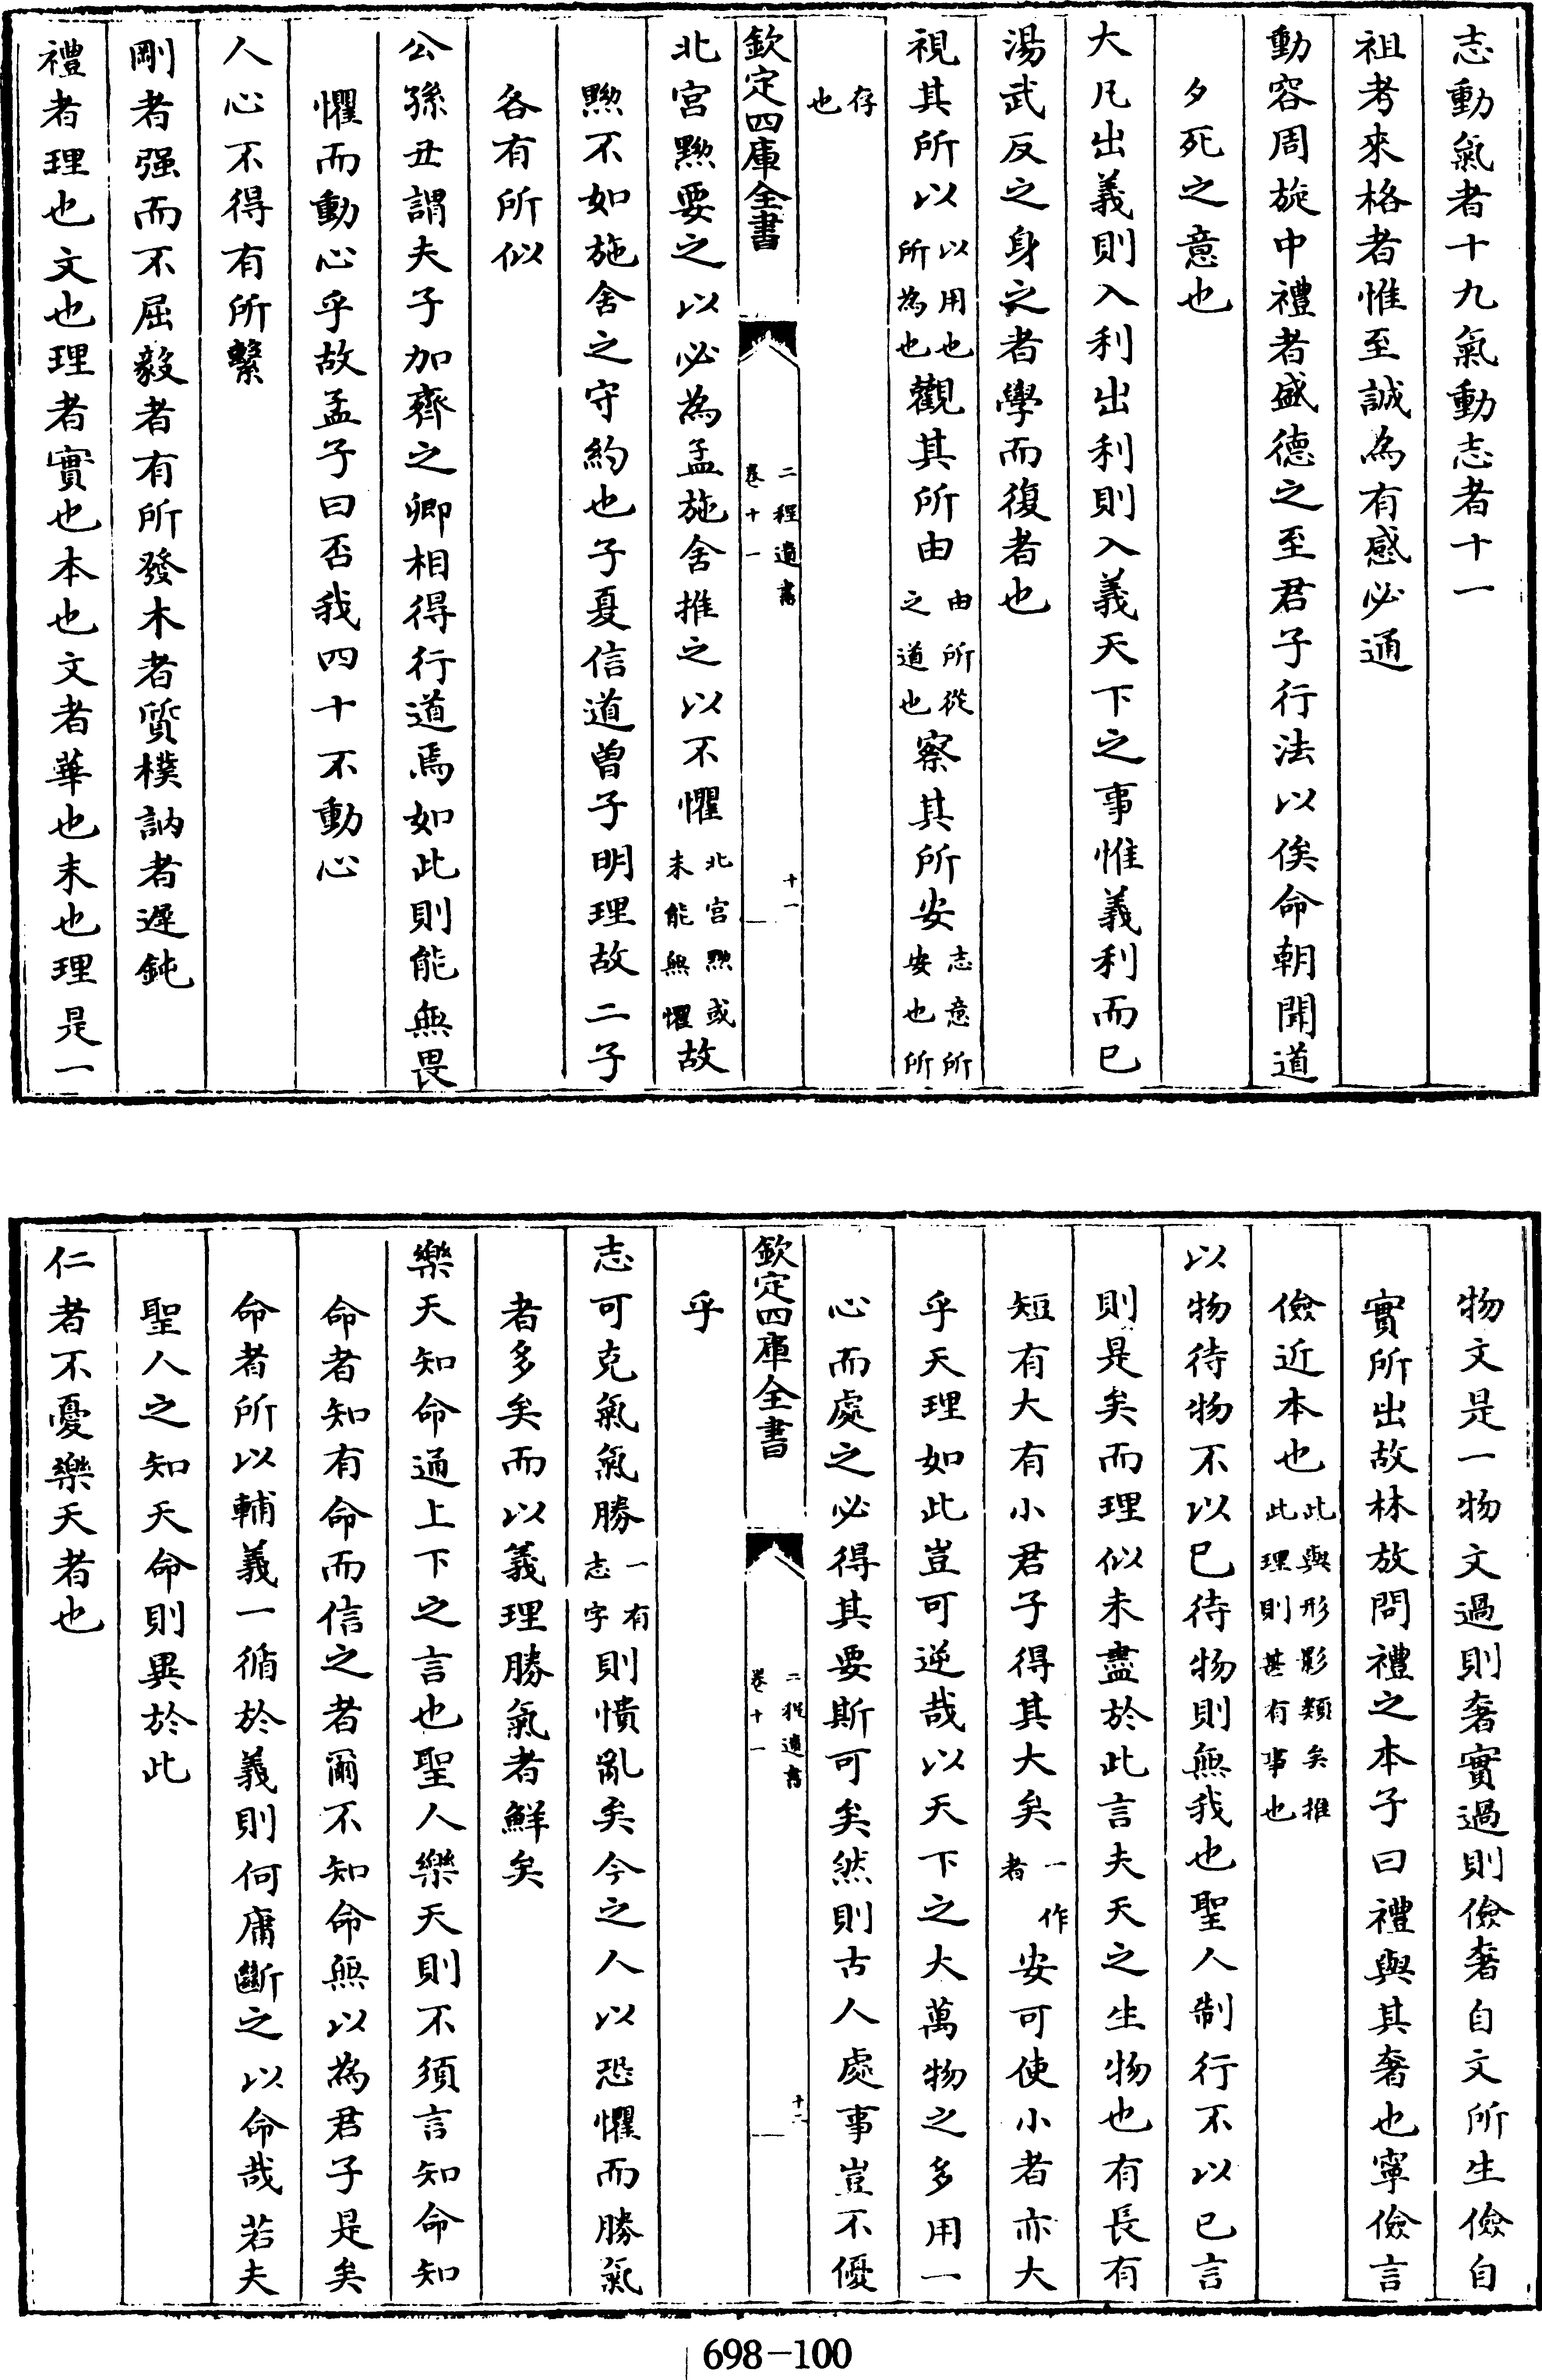 志動氣者十九氣動志者十一
祖考來格者惟至誠為有感必通
動容周旋中禮者盛德之至君子行法以俟命朝聞道
夕死之意也
大凡出義則入利出利則入義天下之事惟義利而已
湯武反之身之者學而復者也
視其所以以用也所為也觀其所由由所從之道也察其所安志意所安也所
存也
欽定四庫全書
二程遺書
卷十一
十一
北宮黝要之以必為孟施舍推之以不懼北宮黝或未能無懼故
黝不如施舍之守約也子夏信道曽子明理故二子
各有所似
公孫丑謂夫子加齊之卿相得行道焉如此則能無畏
懼而動心乎故孟子曰否我四十不動心
人心不得有所繫
剛者强而不屈毅者有所發木者質樸訥者遲鈍
禮者理也文也理者實也本也文者華也末也理是一
物文是一物文過則奢實過則儉奢自文所生儉自
實所出故林放問禮之本子曰禮與其奢也寧儉言
儉近本也此與形影類矣推此理則甚有事也
以物待物不以已待物則無我也聖人制行不以已言
則是矣而理似未盡於此言夫天之生物也有長有
短有大有小君子得其大矣一作者安可使小者亦大
乎天理如此豈可逆哉以天下之大萬物之多用一
心而處之必得其要斯可矣然則古人處事豈不優
欽定四庫全書
二程遺書
卷十一
十二
乎
志可克氣氣勝一有志字則憒亂矣今之人以恐懼而勝氣
者多矣而以義理勝氣者鮮矣
樂天知命通上下之言也聖人樂天則不須言知命知
命者知有命而信之者爾不知命無以為君子是矣
命者所以輔義一循於義則何庸斷之以命哉若夫
聖人之知天命則異於此
仁者不憂樂天者也
698-100